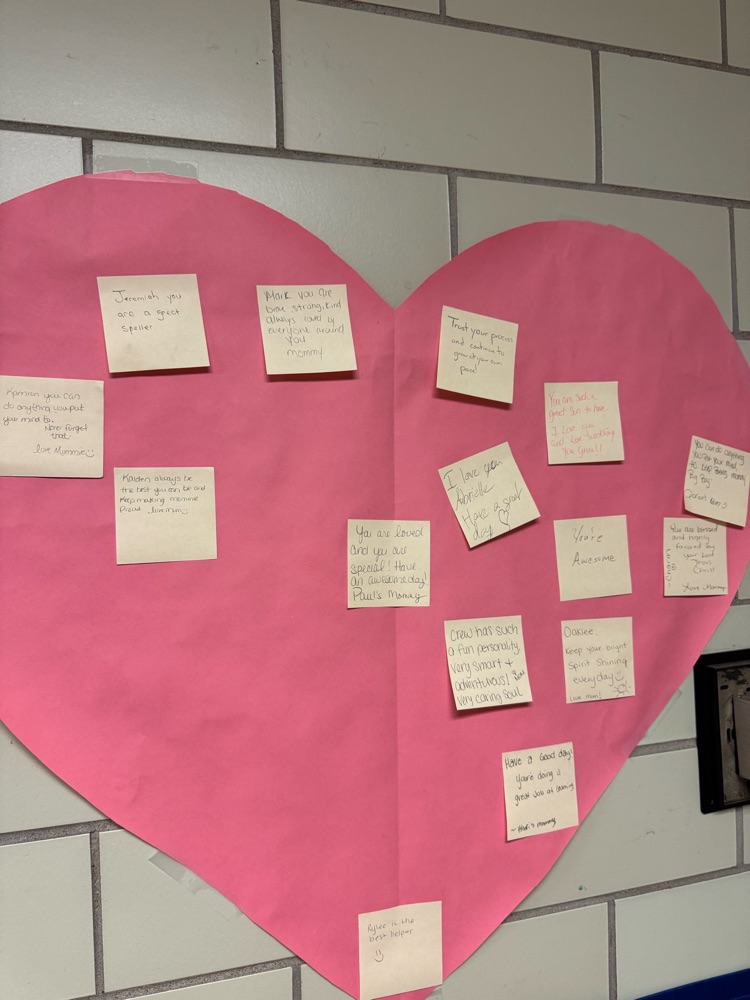 Jeremiah you
are a great
speller
Mark you are
brave, strong, kind
always loved by
everyone around
you
mommy
Trust your process
and continue to
grow at your own
pace!
Kamran you can
do anything you put
your mind to.
Never forget
that
love Mommie
You are such a
great Son to have
I love you
and love
You Grow!!
Kaiden always be
the best you can be and
Keep making mommie
Proud love mom
I love you
Abrielle
Have a great
day
You can do anything
You put your mind
to
You are loved
and you are
special! Have
an awesome day!
Paul's Mommy
You're
Awesome
You are blessed
and highly
favored by
your Lord
Jesus
Christ!
Love Mommy
Crew has such
a fun personality.
Very smart +
adventurous!
Very caring soul
Oaklee,
Keep your bright
Spirit Shining
everyday
Love mom!
Have a Good day!
You're doing a
great Job at learning
mommy
Rylee is the
best helper